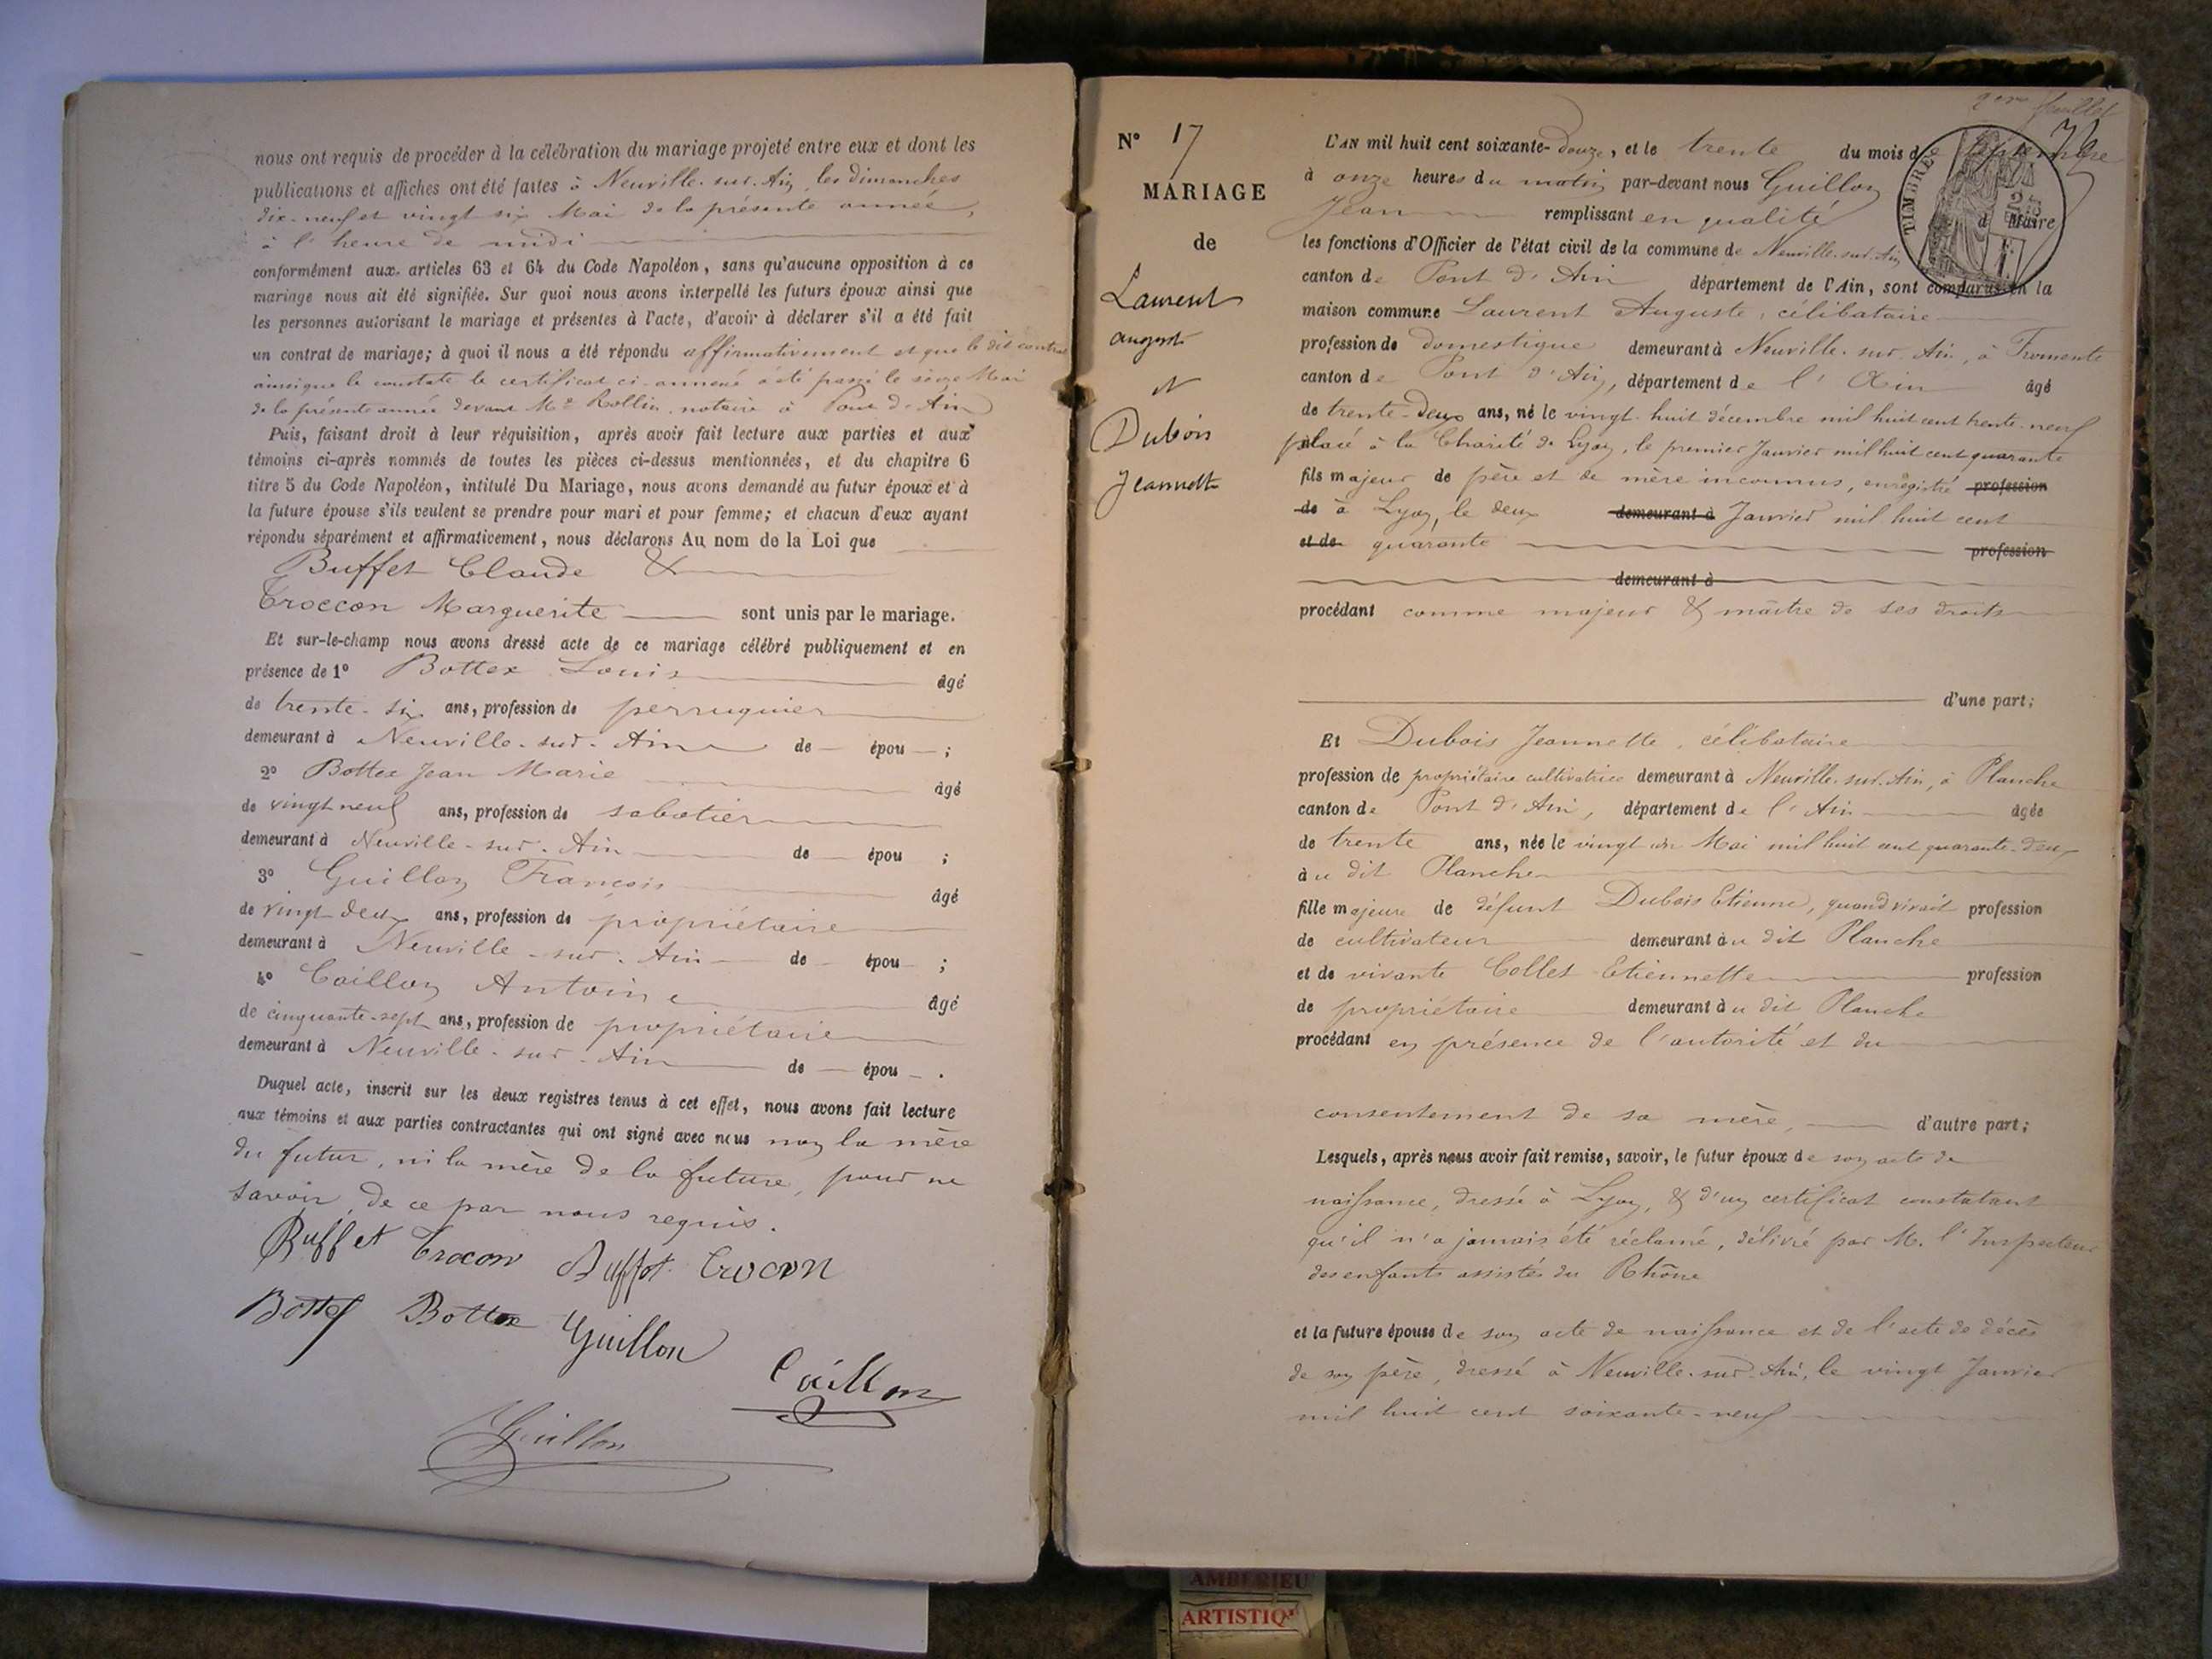 nous ont requis de procéder à la célébration du mariage projeté entre eux et dont les
publications et affiches ont été faites à Neuville-sur-Ain, les dimanches
dix-neuf et vingt six Mai de la présente année,
à l'heure de midi
conformément aux articles 63 et 64 du Code Napoléon, sans qu'aucune opposition à ce
mariage nous ait été signifiée. Sur quoi nous avons interpellé les futurs époux ainsi que
les personnes autorisant le mariage et présentes à l'acte, d'avoir à déclarer s'il a été fait
un contrat de mariage; à quoi il nous a été répondu affirmativement et que le dit contrat
ainsi que le constate le certificat ci-annexé a été passé le seize Mai
de la présente année devant Me Rollin notaire à Pont d'Ain
Puis, faisant droit à leur réquisition, après avoir fait lecture aux parties et aux
témoins ci-après nommés de toutes les pièces ci-dessus mentionnées, et du chapitre 6
titre 5 du Code Napoléon, intitulé Du Mariage, nous avons demandé au futur époux et à
la future épouse s'ils veulent se prendre pour mari et pour femme; et chacun d'eux ayant
répondu séparément et affirmativement, nous déclarons Au nom de la Loi que
Buffet Claude &
Troccon Marguerite sont unis par le mariage.
Et sur-le-champ nous avons dressé acte de ce mariage célébré publiquement et en
présence de 1° Bottex Louis âgé
de trente-six ans, profession de perruquier
demeurant à Neuville-sur-Ain de épou ;
2° Bottex Jean Marie âgé
de vingt neuf ans, profession de sabotier
demeurant à Neuville-sur-Ain de épou ;
3° Guillon François âgé
de vingt deux ans, profession de propriétaire
demeurant à Neuville-sur-Ain de épou ;
4° Caillon Antoine âgé
de cinquante-sept ans, profession de propriétaire
demeurant à Neuville-sur-Ain de épou .
Duquel acte, inscrit sur les deux registres tenus à cet effet, nous avons fait lecture
aux témoins et aux parties contractantes qui ont signé avec nous non la mère
du futur, ni la mère de la future, pour ne
savoir, de ce par nous requis.
Buffet Trocon Buffet Trocon
Bottex Bottex Guillon
Caillon
Guillon
N° 17
MARIAGE
de
Laurent
auguste
&
Dubois
Jeannette
feuillet
TIMBRE
25
L'AN mil huit cent soixante-douze, et le trente du mois de septembre
à onze heures du matin par-devant nous Guillon
Jean remplissant en qualité de Maire
les fonctions d'Officier de l'état civil de la commune de Neuville-sur-Ain
canton de Pont d'Ain département de l'Ain, sont comparus en la
maison commune Laurent Auguste, célibataire
profession de domestique demeurant à Neuville-sur-Ain, à Fromente
canton de Pont d'Ain, département de l'Ain âgé
de trente-deux ans, né le vingt-huit décembre mil huit cent trente-neuf
placé à la Charité de Lyon, le premier Janvier mil huit cent quarante
fils majeur de père et de mère inconnus, enregistré profession
de à Lyon, le deux demeurant à Janvier mil huit cent
et de quarante profession
demeurant à
procédant comme majeur & maître de ses droits
d'une part;
Et Dubois Jeannette, célibataire
profession de propriétaire cultivatrice demeurant à Neuville-sur-Ain, à Planche
canton de Pont d'Ain, département de l'Ain âgée
de trente ans, née le vingt un Mai mil huit cent quarante-deux
au dit Planche
fille majeure de défunt Dubois Etienne, quand vivait profession
de cultivateur demeurant au dit Planche
et de vivante Collet Etiennette profession
de propriétaire demeurant au dit Planche
procédant en présence de l'autorité et du
consentement de sa mère, d'autre part;
Lesquels, après nous avoir fait remise, savoir, le futur époux de son acte de
naissance, dressé à Lyon, & d'un certificat constatant
qu'il n'a jamais été réclamé, délivré par M. l'Inspecteur
des enfants assistés du Rhône
et la future épouse de son acte de naissance et de l'acte de décès
de son père, dressé à Neuville-sur-Ain, le vingt Janvier
mil huit cent soixante-neuf
AMBERIEU
ARTISTIQ